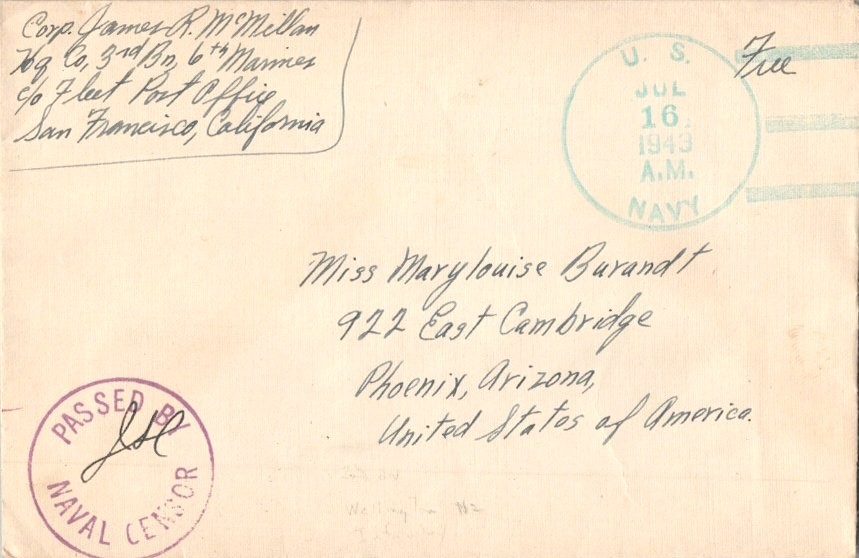 Corp. James R. McMillan
Hq Co, 3rd Bn, 6th Marines
c/o Fleet Post Office
San Francisco, California
U. S.
JUL
16
1943
A.M.
NAVY
Free
Miss Marylouise Burandt
922 East Cambridge
Phoenix, Arizona,
United States of America.
PASSED BY
NAVAL CENSOR